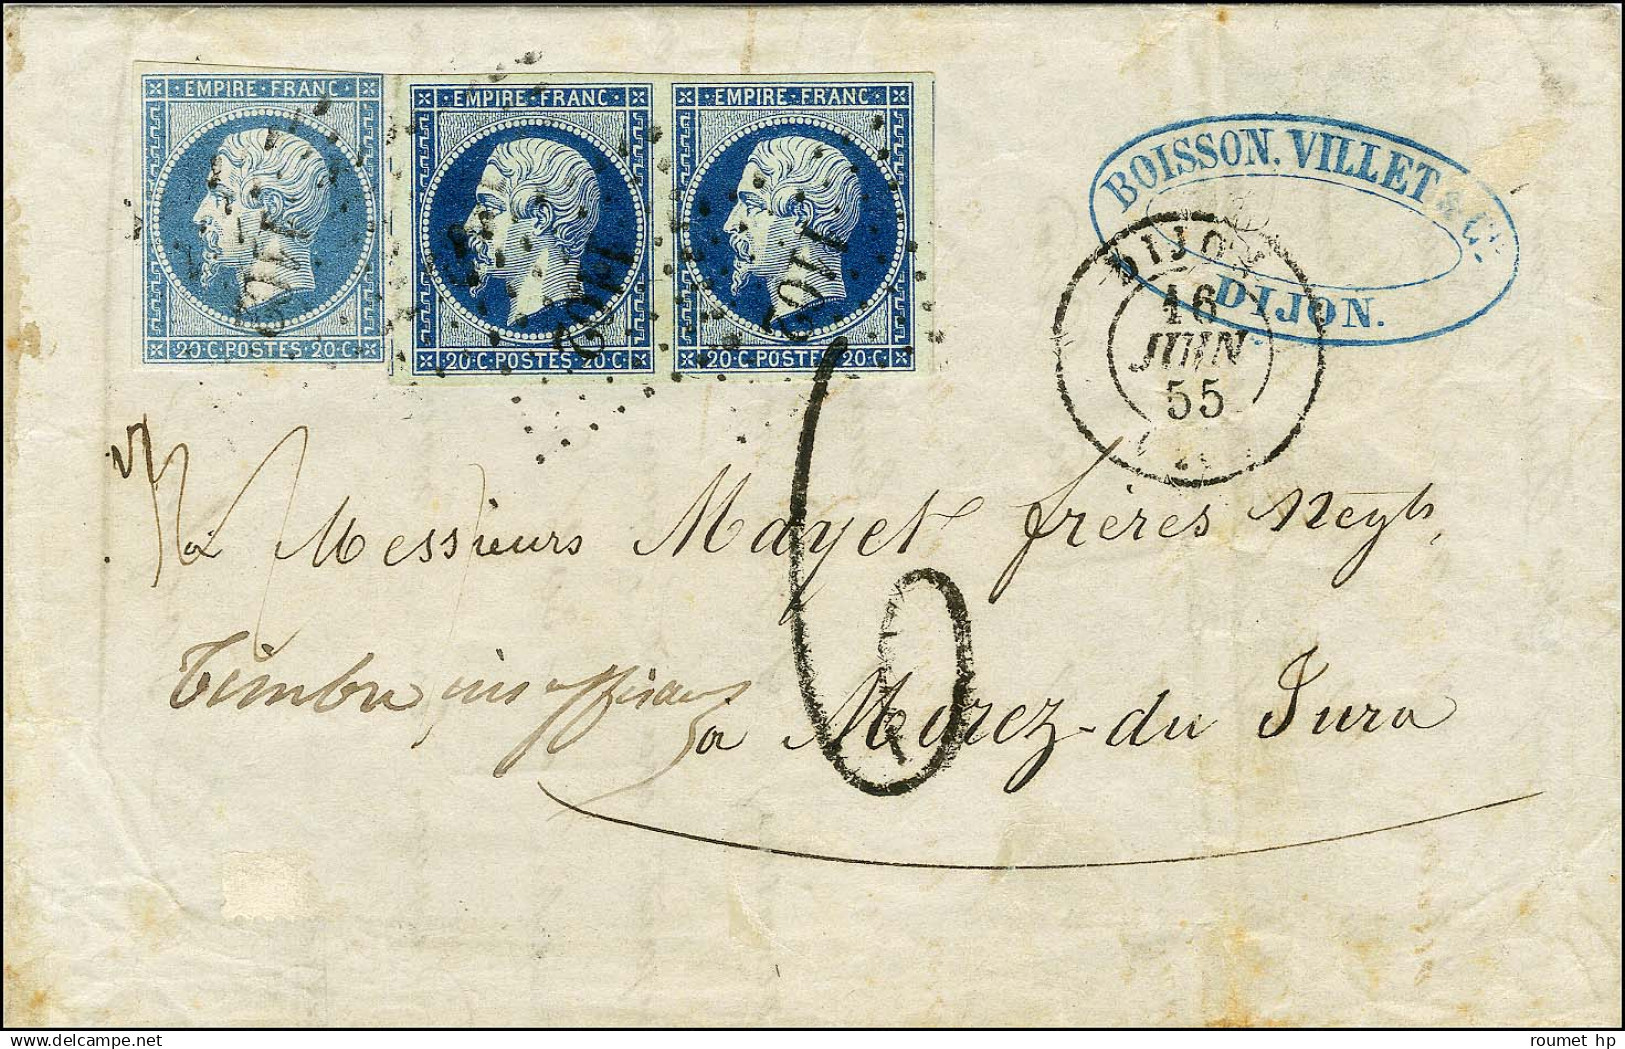 EMPIRE · FRANC · EMPIRE · FRANC · EMPIRE · FRANC
1102 1102 1102
20·C·POSTES·20·C 20·C·POSTES·20·C 20·C·POSTES·20·C
BOISSON. VILLET & Cie.
DIJON.
DIJON
16
JUIN
55
6
a Messieurs Mayet frères Negts
Timbre insuffisant
a Morez-du Jura
roumet hp